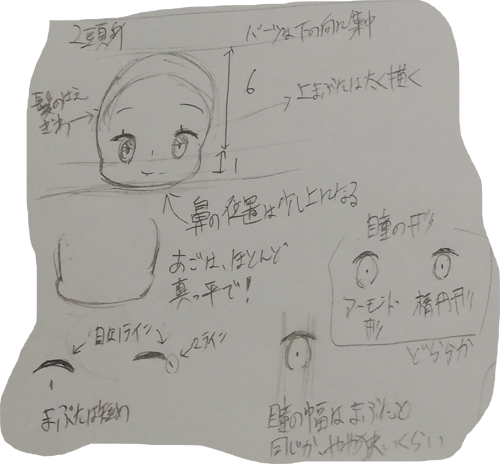 2頭身
パーツは下の方に集中
6
上まぶたは太く描く
髪のはえ
ぎわ
1
鼻の位置は少し上になる
あごは、ほとんど
真っ平で!
瞳の形
アーモンド
形
楕円形
どちらか
ライン
ライン
まぶたは短め
瞳の幅はまぶたと
同じか、やや狭いくらい